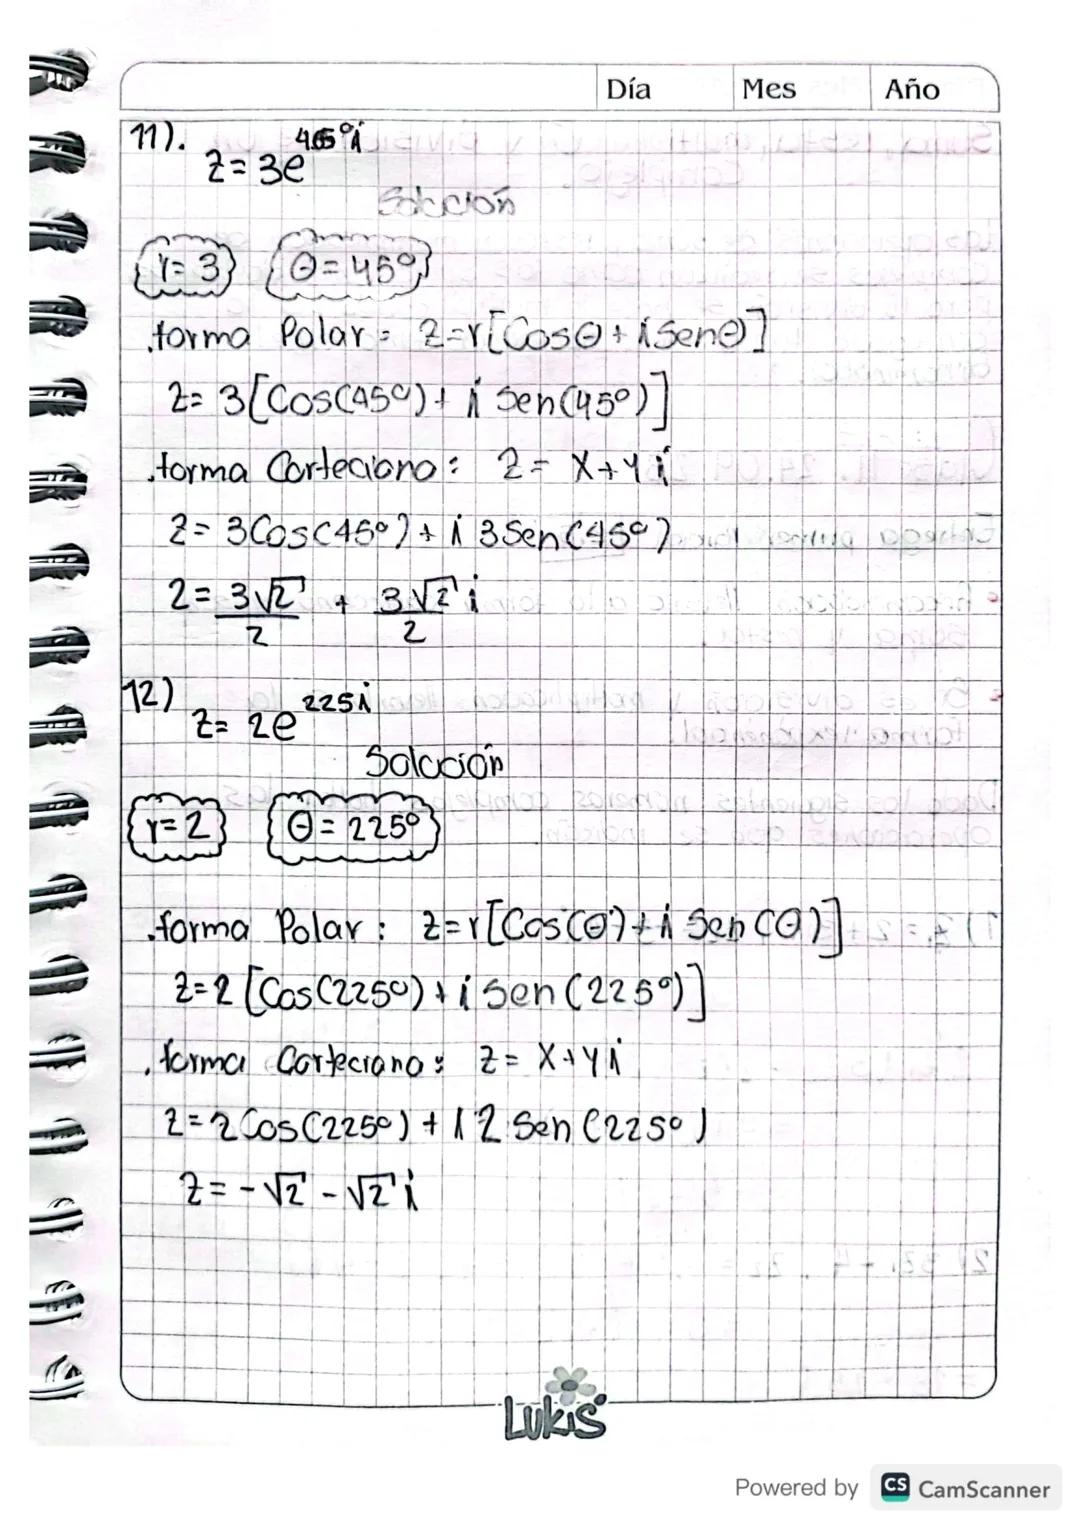 Día Mes Año
11). z = 3e^45°i
Solución
r = 3 θ = 45°
.forma Polar = z = r[Cosθ + i Senθ]
z = 3[Cos(45°) + i Sen(45°)]
.forma Carteciano : z = x + yi
z = 3Cos(45°) + i 3Sen(45°)
z = 3√2/2 + 3√2/2 i
12) z = 2e^225i
Solución
r = 2 θ = 225°
.forma Polar : z = r[Cos(θ) + i Sen(θ)]
z = 2[Cos(225°) + i Sen(225°)]
.forma Carteciano : z = x + yi
z = 2Cos(225°) + i 2 Sen(225°)
z = -√2 - √2 i
LUKIS
Powered by CS CamScanner